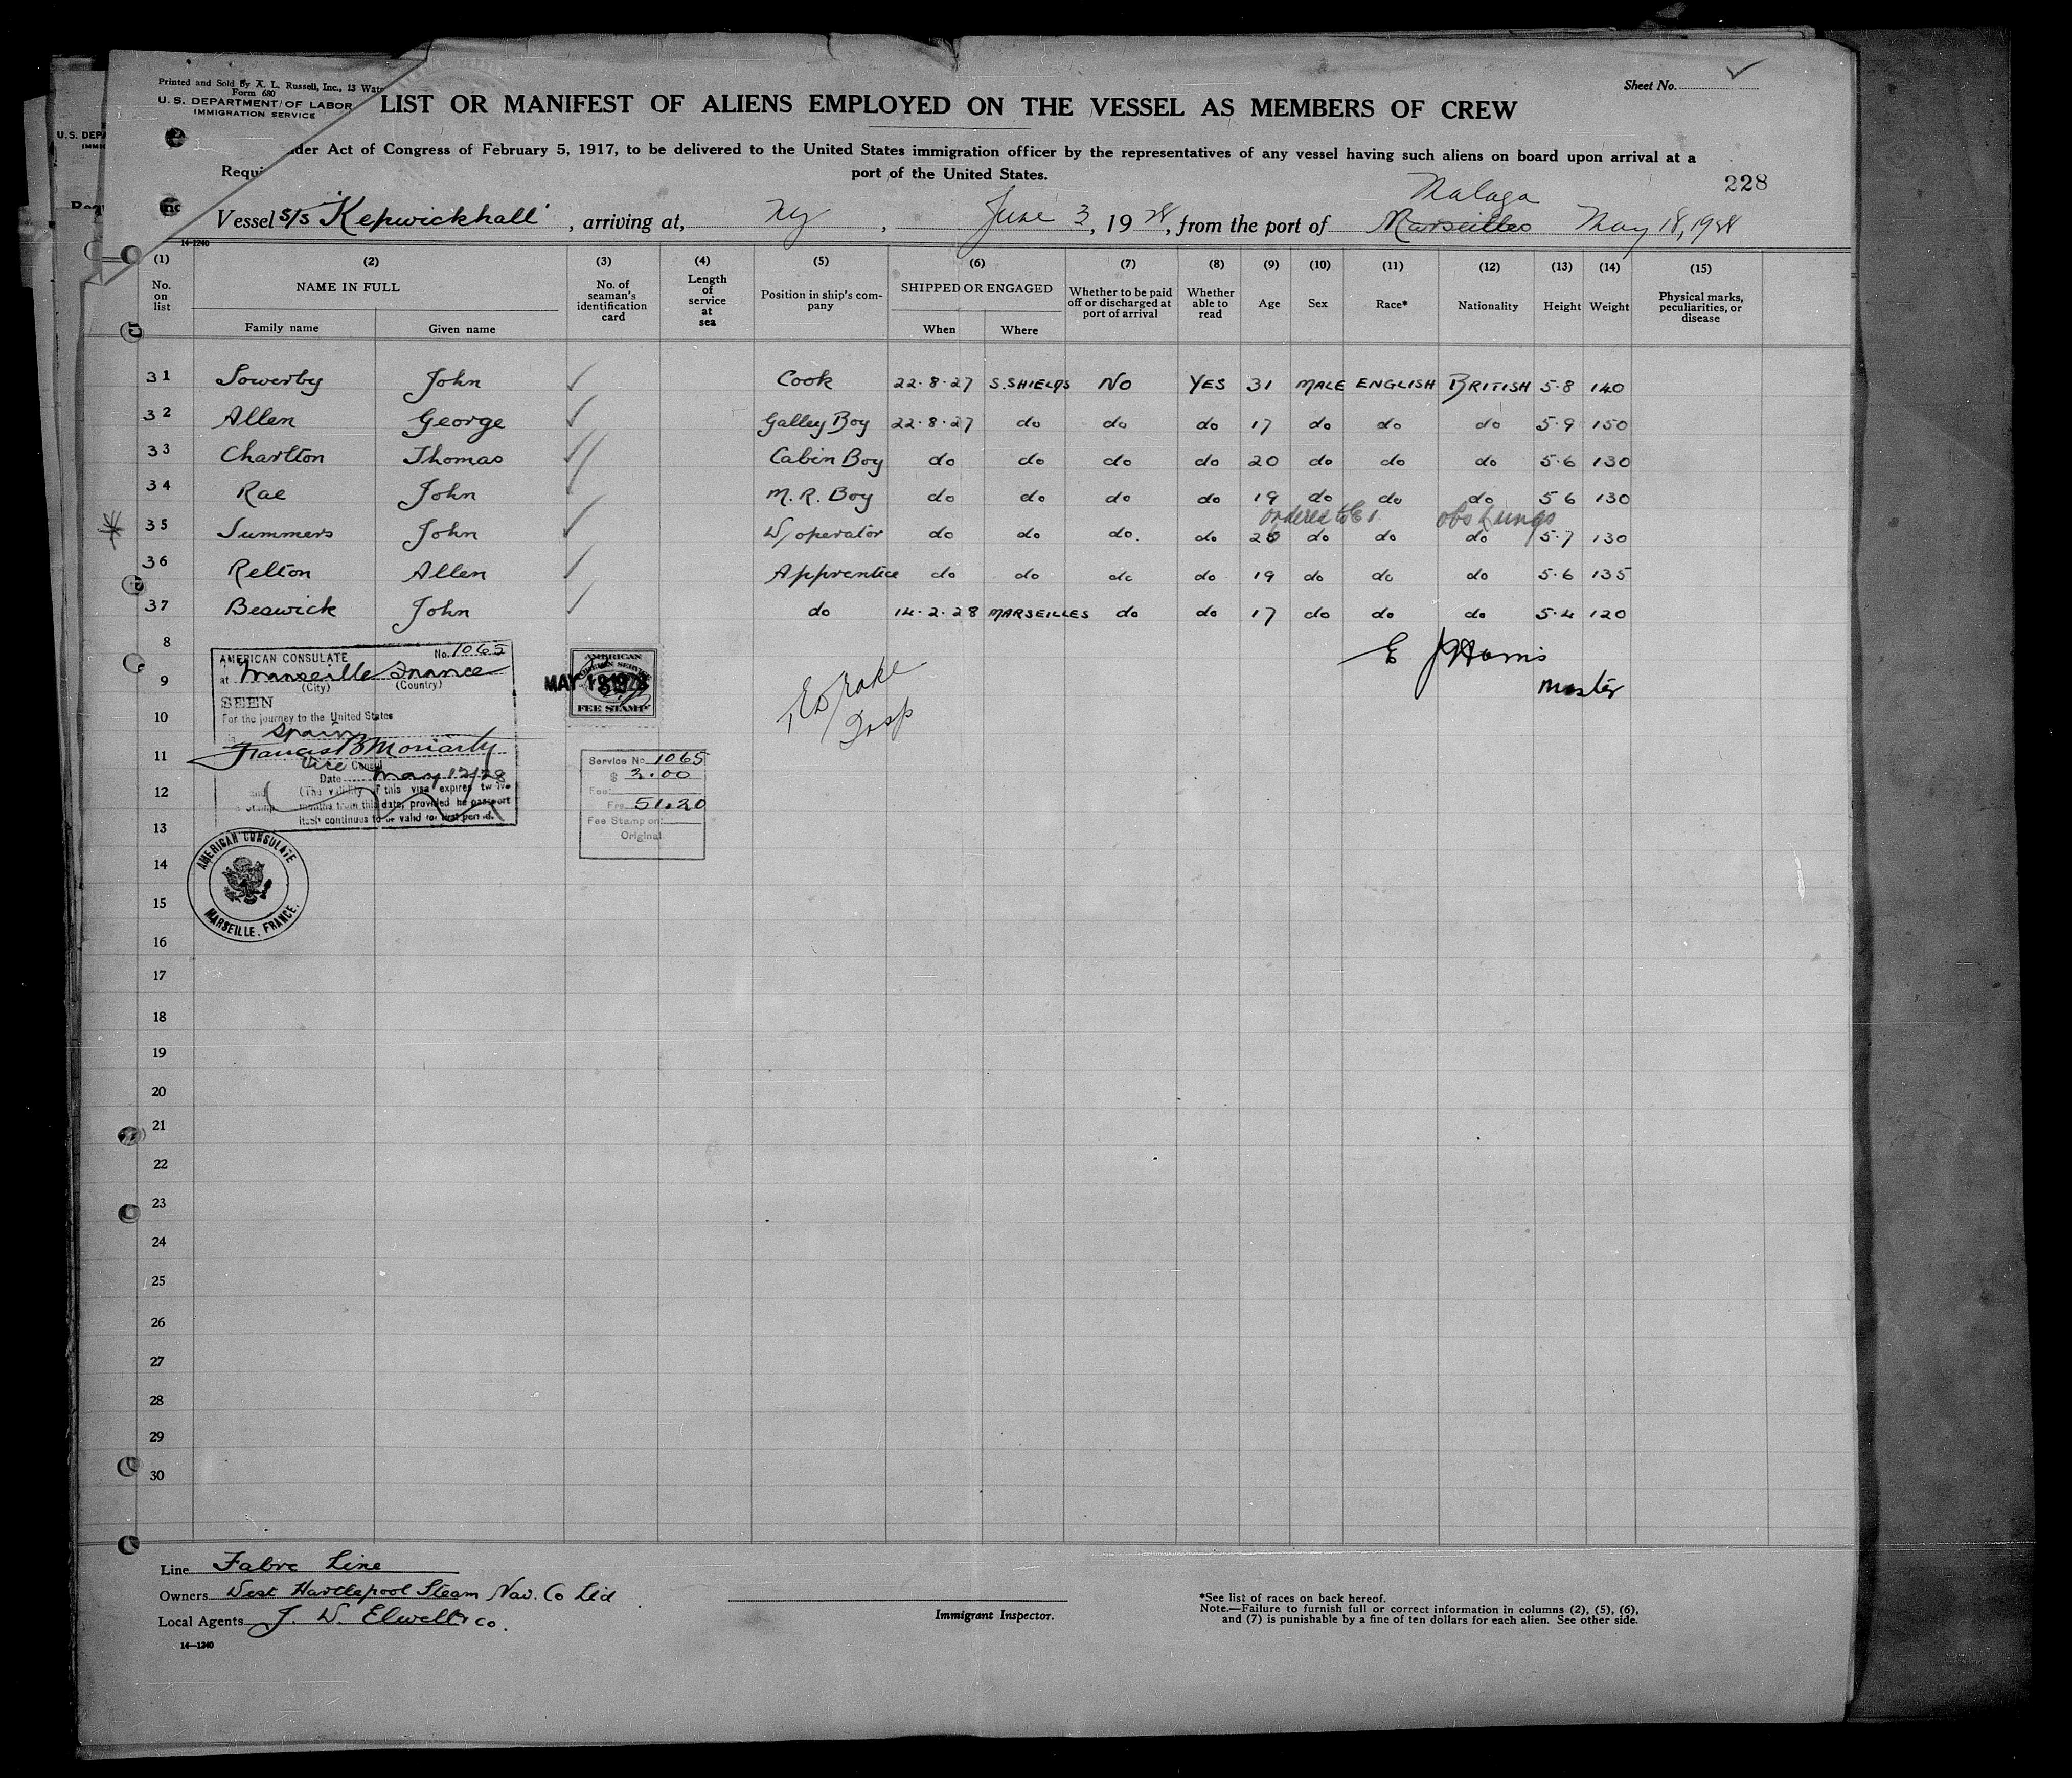 Printed and Sold By A. L. Russell, Inc., 13
Form 680
U. S. DEPARTMENT OF LABOR
IMMIGRATION SERVICE
Sheet No.
LIST OR MANIFEST OF ALIENS EMPLOYED ON THE VESSEL AS MEMBERS OF CREW
der Act of Congress of February 5, 1917, to be delivered to the United States immigration officer by the representatives of any vessel having such aliens on board upon arrival at a
port of the United States.
228
Malaga
Vessel S/S "Kepwickhall" , arriving at, NY , June 3, 1928, from the port of Marseilles May 18, 1928
14-1240
(1) (2) (3) (4) (5) (6) (7) (8) (9) (10) (11) (12) (13) (14) (15)
No. on list NAME IN FULL Family name Given name No. of seaman's identification card Length of service at sea Position in ship's company SHIPPED OR ENGAGED When Where Whether to be paid off or discharged at port of arrival Whether able to read Age Sex Race* Nationality Height Weight Physical marks, peculiarities, or disease
31 Sowerby John Cook 22·8·27 S.SHIELDS NO YES 31 MALE ENGLISH BRITISH 5·8 140
32 Allen George Galley Boy 22·8·27 do do do 17 do do do 5·9 150
33 Charlton Thomas Cabin Boy do do do do 20 do do do 5·6 130
34 Rae John M. R. Boy do do do do 19 do do do 5 6 130
35 Summers John W/operator do do do. do 26 do do do 5·7 130
36 Relton Allen Apprentice do do do do 19 do do do 5·6 135
37 Beswick John do 14·2·28 MARSEILLES do do 17 do do do 5·4 120
8
E J Harris
master
AMERICAN CONSULATE No. 1065
at Marseille France
(City) (Country)
SEEN
For the journey to the United States
Spain
Francis B Moriarty
Vice Consul
Date May 12/28
(The validity of this visa expires
months from this date, provided he passport
itself continues to be valid for that period.
AMERICAN
FOREIGN SERVICE
FEE STAMP
Service No. 1065
$ 2.00
Fee:
Frs. 51.20
Fee Stamp on:
Original
AMERICAN CONSULATE
MARSEILLE, FRANCE.
9
10
11
12
13
14
15
16
17
18
19
20
21
22
23
24
25
26
27
28
29
30
Line Fabre Line
Owners West Hartlepool Steam Nav. Co Ltd
Local Agents J. W. Elwell & Co.
14—1240
Immigrant Inspector.
*See list of races on back hereof.
Note.—Failure to furnish full or correct information in columns (2), (5), (6),
and (7) is punishable by a fine of ten dollars for each alien. See other side.